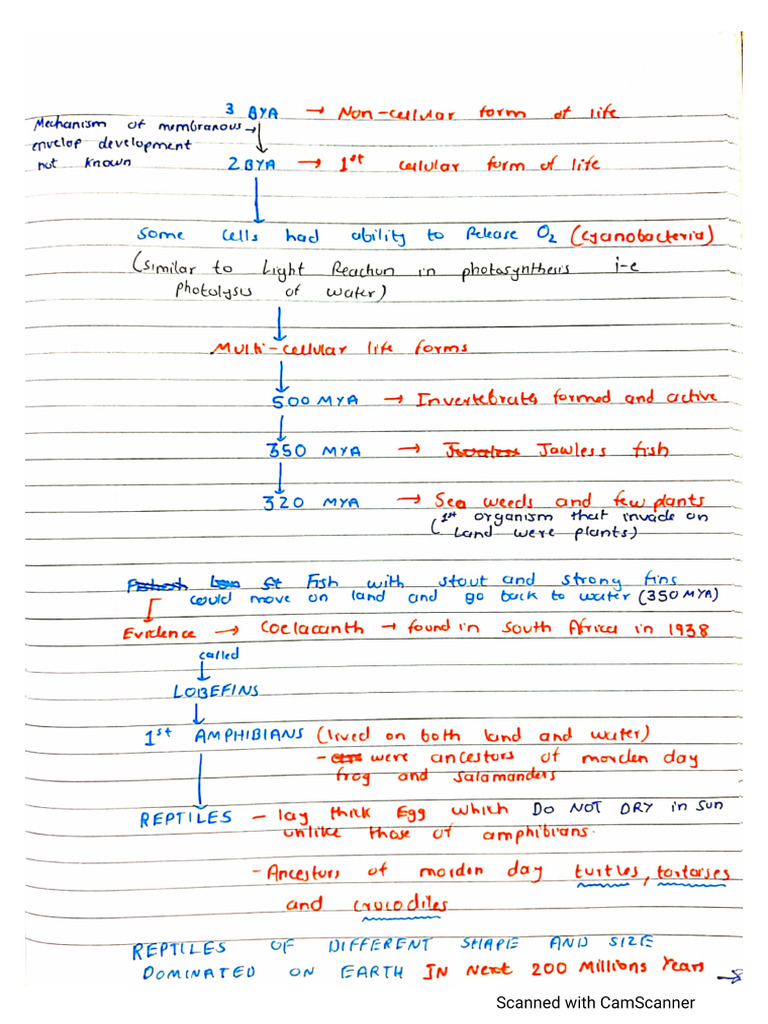 3 BYA → Non-cellular form of life
Mechanism of membranous →
envelop development
not known
2 BYA → 1st cellular form of life
some cells had ability to Release O2 (cyanobacteria)
(similar to Light Reaction in photosynthesis i-e
photolysis of water)
Multi-cellular life forms
500 MYA → Invertebrates formed and active
350 MYA → Jawless fish
320 MYA → Sea weeds and few plants
(1st organism that invade on
Land were plants)
Fish with stout and strong fins
could move on land and go back to water (350 MYA)
Evidence → Coelacanth → found in South Africa in 1938
called
LOBEFINS
1st AMPHIBIANS (lived on both land and water)
- were ancestors of morden day
frog and salamanders
REPTILES - lay thick Egg which DO NOT DRY in sun
unlike those of amphibians.
- Ancestors of morden day turtles, tortorses
and crocodiles
REPTILES OF DIFFERENT SHAPE AND SIZE
DOMINATED ON EARTH IN Next 200 Millions Years →
Scanned with CamScanner